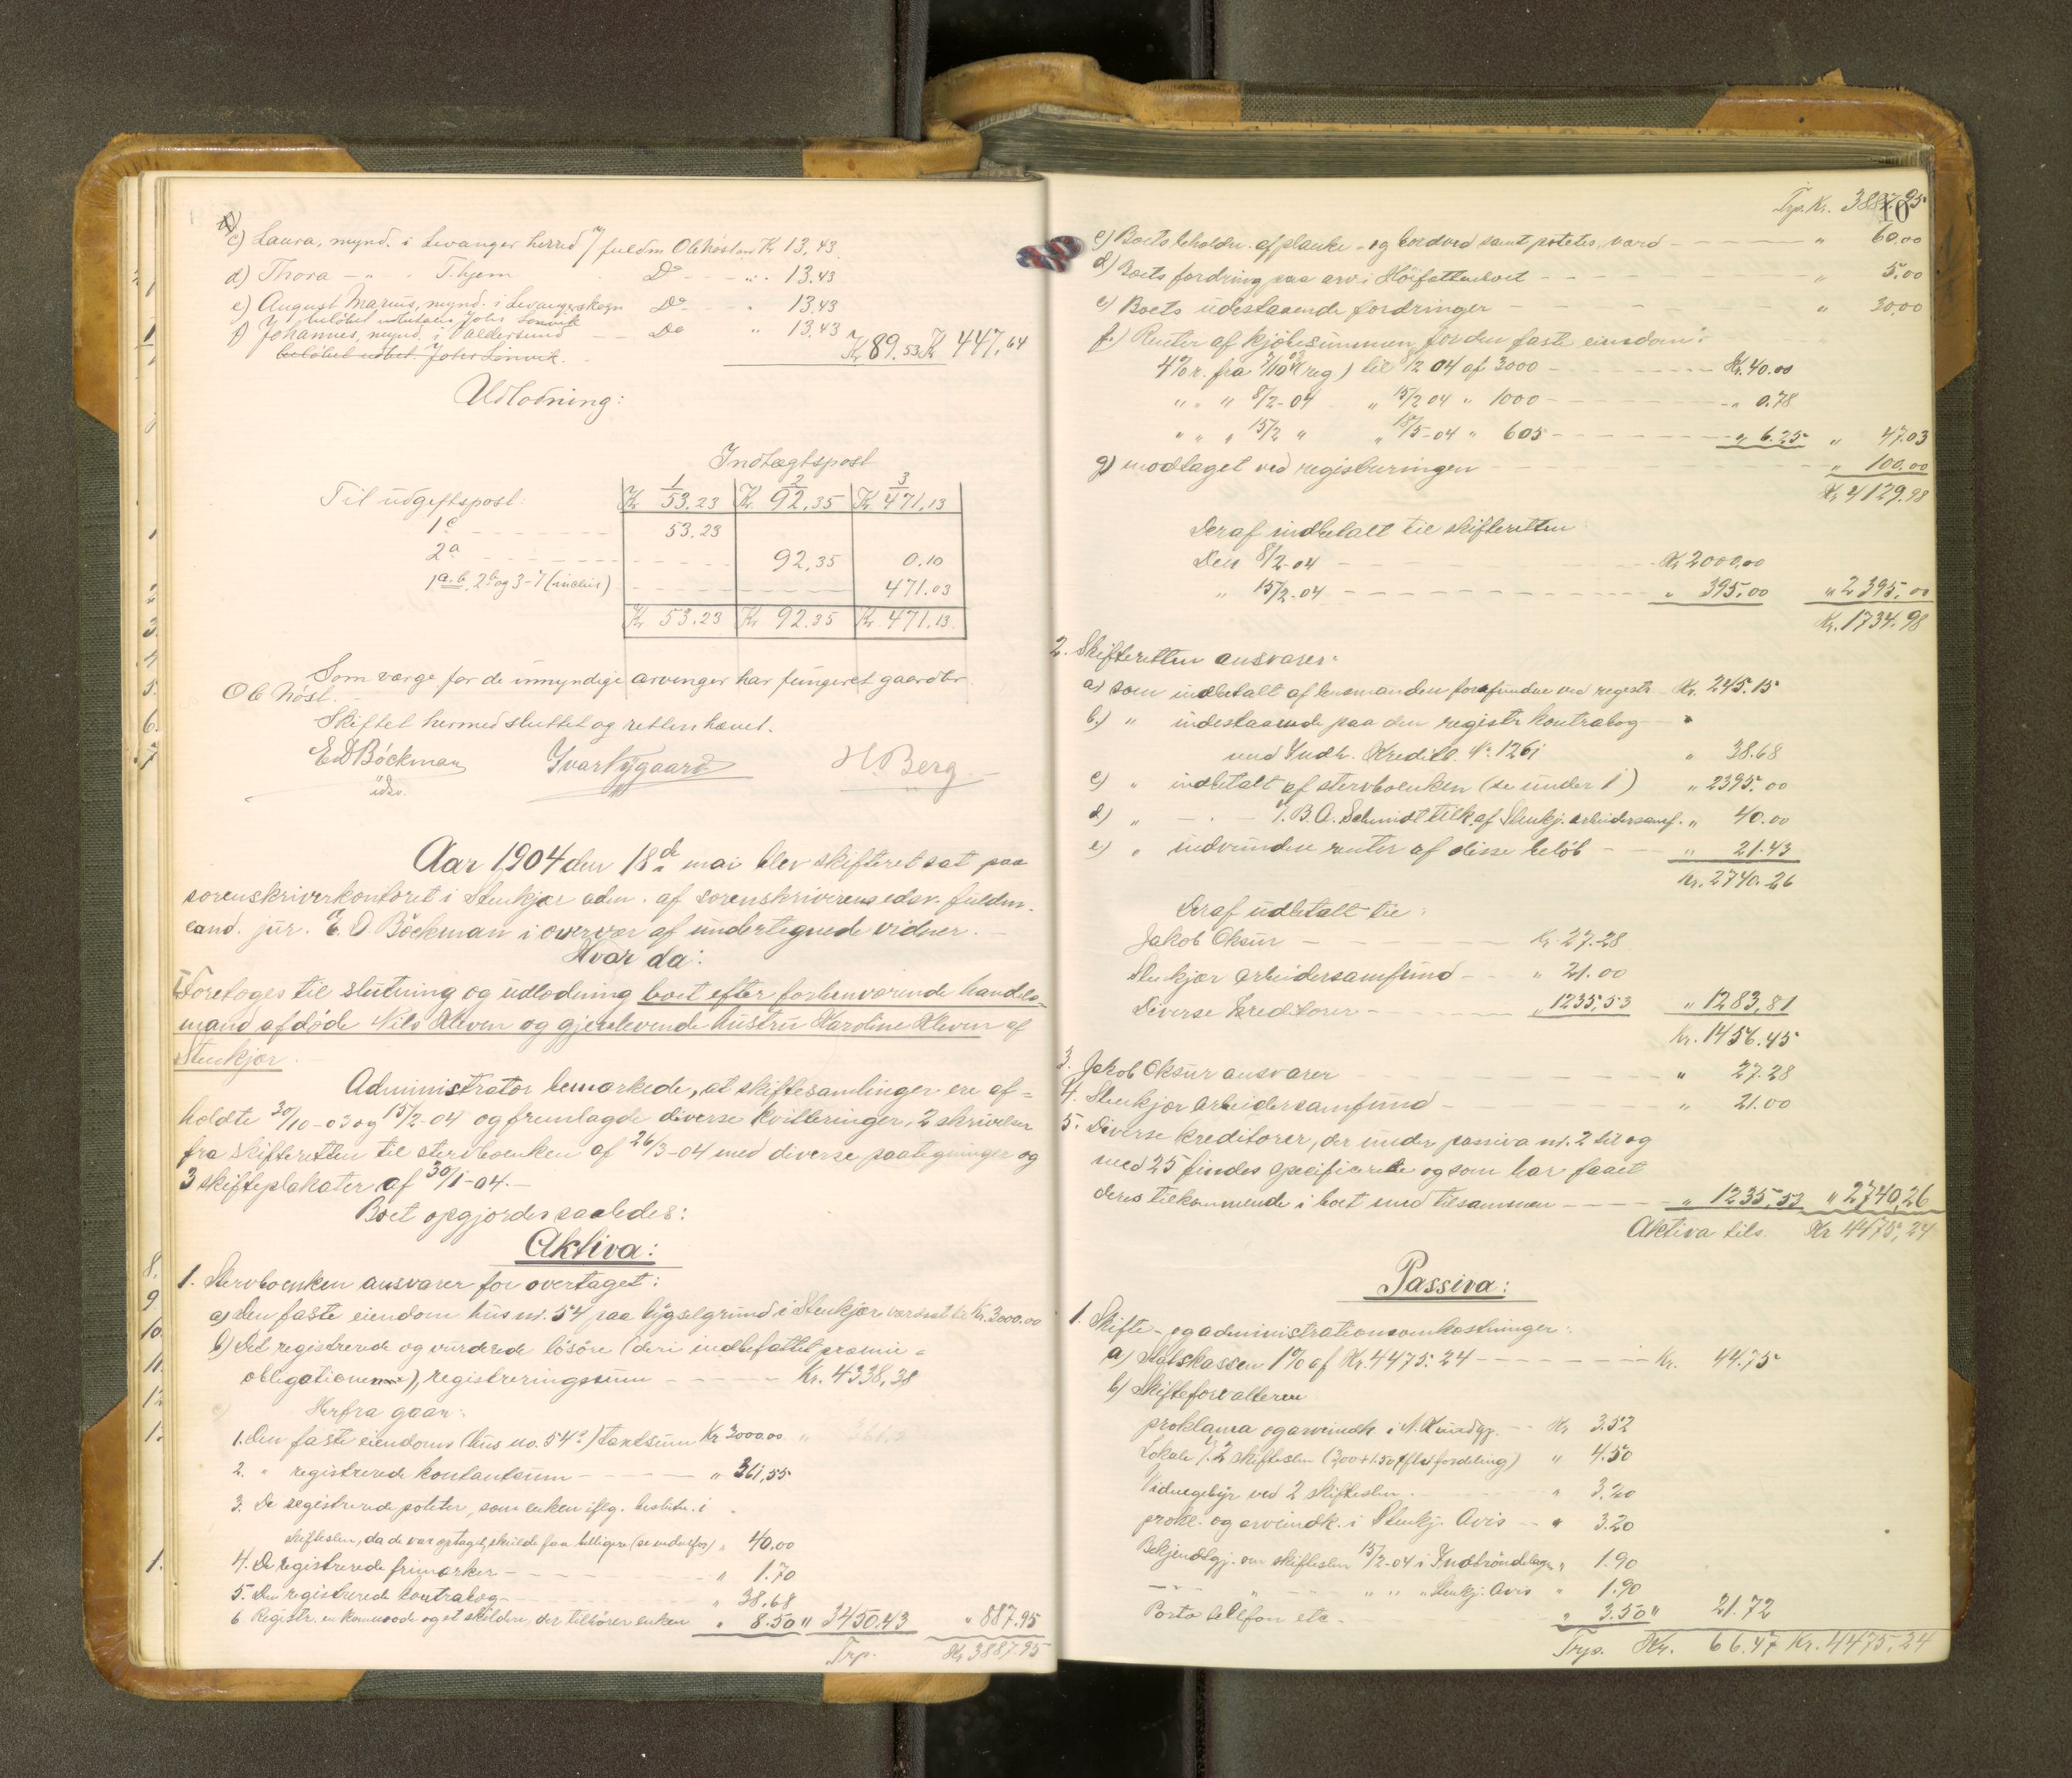 c) Laura, mynd. i Levanger herred v/ fuldm Ole Nöst Kr 13.43
d) Thora — " - T. hjem D° " 13.43
e) August Marius, mynd. i Levangerskogn D° " 13.43
beløbet udbetales Johs Lönvik
f) Johannes, mynd. i Valdersund D° " 13.43
beløbet udbet. Johs Lönvik. Kr 89.53 Kr 447,64
Udlodning:
Indtægtspost
1 2 3
Til udgiftspost: Kr 53.23 Kr 92.35 Kr 471.13
1c 53.23
2a 92.35 0.10
1a.b, 2b og 3-7 (inclus) 471.03
Kr 53.23 Kr 92.35 Kr 471.13
Som værge for de umyndige arvinger har fungeret gaardbr.
Ole Nöst.
Skiftet hermed sluttet og retten hævet.
E D Böckman Ivar Nygaard H. Berg
edsv.
Aar 1904 den 18de mai blev skifteret sat paa
sorenskriverkontoret i Stenkjær adm. af sorenskriverens edsv. fuldm.
cand. jur. E. D. Böckman i overvær af undertegnede vidner.
Hvor da:
Foretoges til slutning og udlodning boet efter forhenværende handels=
mand afdøde Nils Kleven og gjenlevende hustru Karoline Kleven af
Stenkjær.
Administrator bemærkede, at skiftesamlinger ere af=
holdte 30/10-03 og 15/2-04 og fremlagde diverse kvitteringer, 2 skrivelser
fra skifteretten til stervboenken af 26/3-04 med diverse paategninger og
3 skifteplakater af 30/1-04.
Boet opgjordes saaledes:
Aktiva:
1. Stervboenken ansvarer for overtaget:
a) Den faste eiendom hus nr. 54 paa bygselgrund i Stenkjær værdsat til Kr. 3000.00
b) Det registrerede og vurderede lösöre (deri indbefattet præmie=
obligationen), registreringssum Kr. 4338,38
Herfra gaar:
1. Den faste eiendoms (hus no. 54) taxtsum Kr 3000.00
2. " registrerede kontantsum " 361,55
3. De registrerede poteter, som enken iflg. beslutn. i
skifteslm, da de var optaget, skulde faa billigere (se nedenfor) " 40.00
4. De registrerede frimærker " 1.70
5. Den registrerede kontrabog " 38.68
6 Registr. en kommode og et skilderi, der tilhörer enken " 8.50 " 3450.43 " 887.95
Trp. Kr 3887.95
Trp. Kr. 3887.95
10
c) Boets beholdn. af planke- og bordved samt poteter, værd " 60.00
d) Boets fordring paa arv i Höifattenboet " 5.00
e) Boets udestaaende fordringer " 30,00
f.) Renter af kjöbesummen for den faste eiendom:
4% r. fra 7/10 03 (reg) til 8/2 04 af 3000 Kr. 40.00
" " " 8/2-04 " 15/2 04 " 1000 " 0.78
" " " 15/2 " " 18/5-04 " 605 " 6.25 " 47.03
g) modtaget ved registreringen " 100.00
Kr 4129.98
Deraf indbetalt til skifteretten
Den 8/2-04 Kr 2000,00
" 15/2-04 " 395.00 " 2395.00
Kr. 1734.98
2. Skifteretten ansvarer:
a) som indbetalt af lensmanden forefundne ved registr. Kr. 245.15
b.) " indestaaende paa den registr kontrabog
med Indh. Kreditb. No. 1261 " 38.68
c) " indbetalt af stervboenken (se under 1) " 2395.00
d) " — " — f. B. A. Schmidt tilk. af Stenkj. arbeidersamf. " 40.00
e) " indvundne renter af disse belöb " 21.43
Kr. 2740.26
Deraf udbetalt til:
Jakob Oksur Kr. 27.28
Stenkjær arbeidersamfund " 21.00
Diverse kreditorer " 1235.53 " 1283,81
Kr. 1456.45
3. Jakob Oksur ansvarer " 27.28
4. Stenkjær arbeidersamfund " 21.00
5. Diverse kreditorer, der under passiva nr. 2 til og
med 25 findes specificerede og som har faaet
deres tilkommende i boet med tilsammen " 1235,53 " 2740,26
Aktiva tils. Kr 4475,24
Passiva:
1. Skifte- og administrationsomkostninger:
a) Statskassen 1% af Kr. 4475.24 Kr. 44.75
b) Skifteforvalteren
proklama og arveindk. i N. Kundgj. Kr 3.52
Lokale t/ 2 skifteslm (3,00+1.50 efter fordeling) " 4.50
Vidnegebyr ved 2 skifteslm. " 3.20
prokl. og arveindk. i Stenkj. Avis " 3.20
Bekjendtgj. om skifteslm 15/2-04 i Indtröndelagen " 1.90
— " — " — " " " Stenkj. Avis " 1.90
Porto telefon etc. " 3.50 " 21.72
Trp. Kr. 66.47 Kr. 4475,24